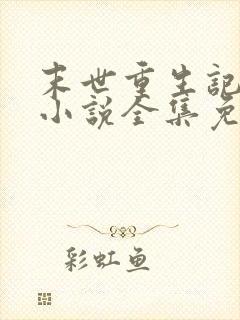 末世重生記
小說全集免
彩虹鱼